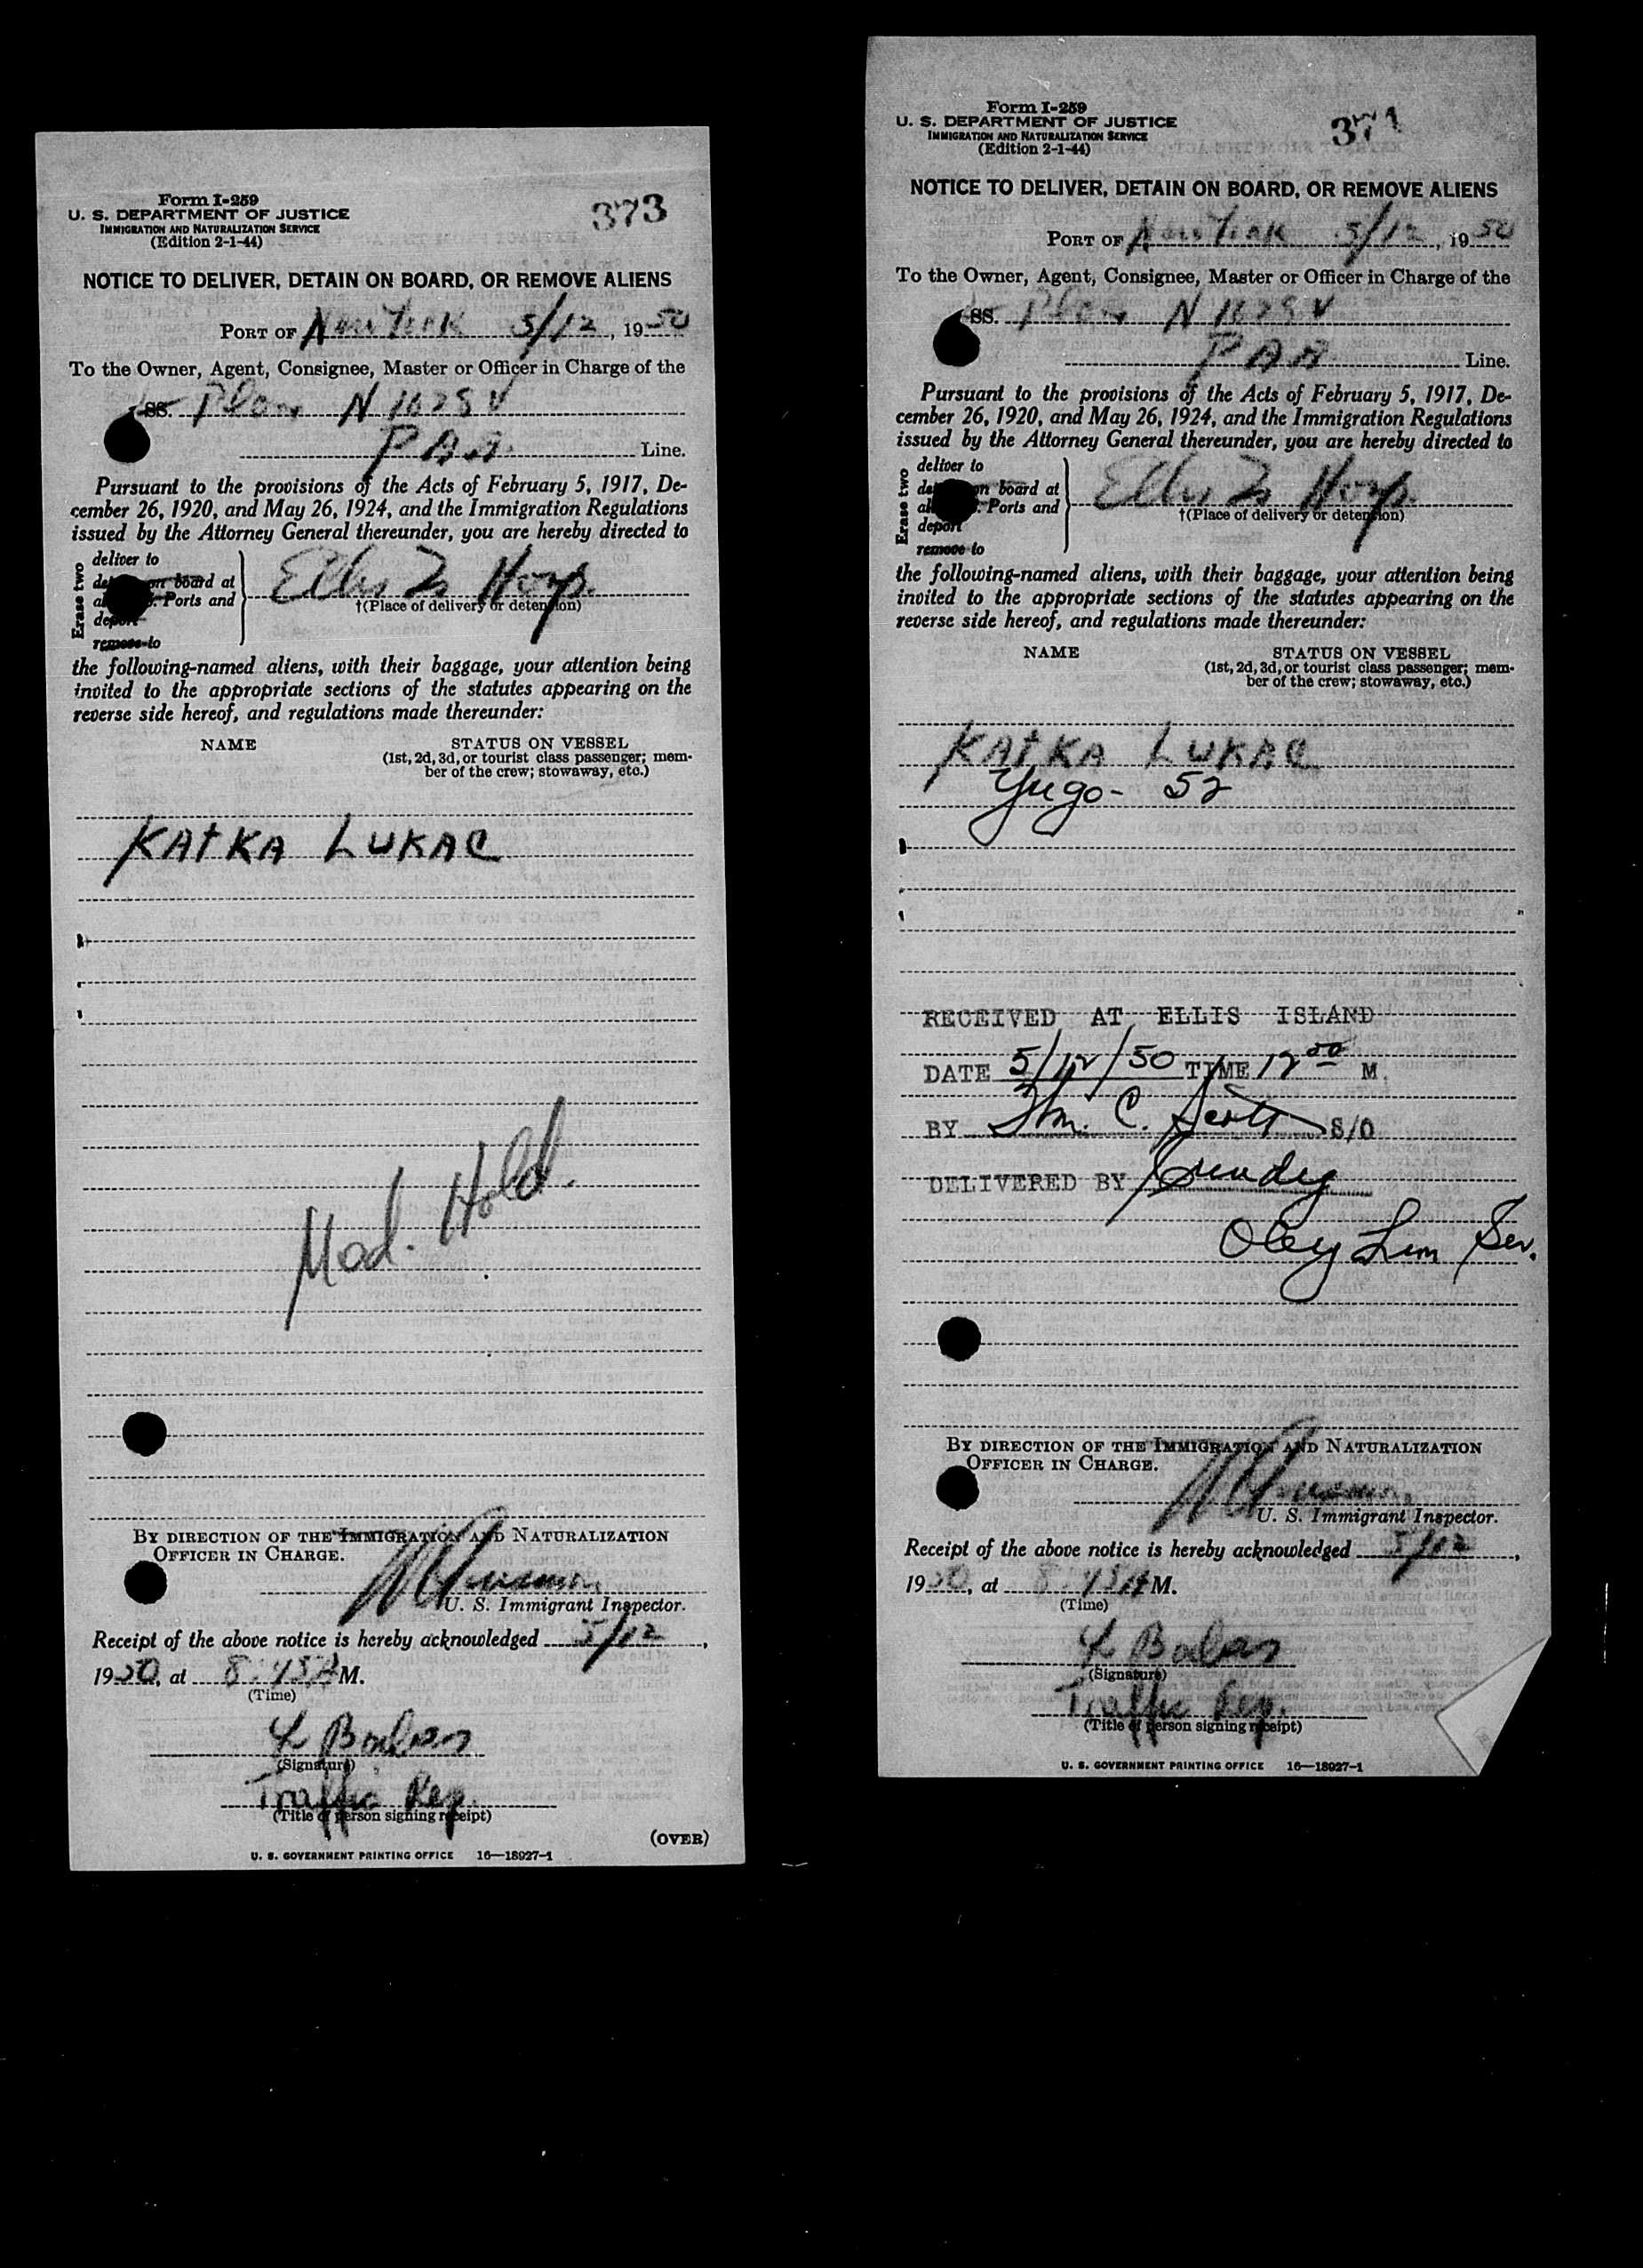 Form I-259
U. S. DEPARTMENT OF JUSTICE
IMMIGRATION AND NATURALIZATION SERVICE
(Edition 2-1-44)
373
NOTICE TO DELIVER, DETAIN ON BOARD, OR REMOVE ALIENS
PORT OF New York 5/12, 1950
To the Owner, Agent, Consignee, Master or Officer in Charge of the
SS. Plane N 1028 V
PAA Line.
Pursuant to the provisions of the Acts of February 5, 1917, De-
cember 26, 1920, and May 26, 1924, and the Immigration Regulations
issued by the Attorney General thereunder, you are hereby directed to
Erase two
deliver to
on board at
Ports and
deport
remove to
Ellis Is Hosp.
†(Place of delivery or detention)
the following-named aliens, with their baggage, your attention being
invited to the appropriate sections of the statutes appearing on the
reverse side hereof, and regulations made thereunder:
NAME STATUS ON VESSEL
(1st, 2d, 3d, or tourist class passenger; mem-
ber of the crew; stowaway, etc.)
KATKA LUKAC
Med. Hold.
BY DIRECTION OF THE IMMIGRATION AND NATURALIZATION
OFFICER IN CHARGE.
U. S. Immigrant Inspector.
Receipt of the above notice is hereby acknowledged 5/12,
1950, at 8:45 A M.
(Time)
(Signature)
Traffic Rep.
(Title of person signing receipt)
(OVER)
U. S. GOVERNMENT PRINTING OFFICE 16—18927-1
Form I-259
U. S. DEPARTMENT OF JUSTICE
IMMIGRATION AND NATURALIZATION SERVICE
(Edition 2-1-44)
374
NOTICE TO DELIVER, DETAIN ON BOARD, OR REMOVE ALIENS
PORT OF New York 5/12, 1950
To the Owner, Agent, Consignee, Master or Officer in Charge of the
SS. Plane N 1028 V
PAA Line.
Pursuant to the provisions of the Acts of February 5, 1917, De-
cember 26, 1920, and May 26, 1924, and the Immigration Regulations
issued by the Attorney General thereunder, you are hereby directed to
Erase two
deliver to
on board at
Ports and
deport
remove to
Ellis Is Hosp.
†(Place of delivery or detention)
the following-named aliens, with their baggage, your attention being
invited to the appropriate sections of the statutes appearing on the
reverse side hereof, and regulations made thereunder:
NAME STATUS ON VESSEL
(1st, 2d, 3d, or tourist class passenger; mem-
ber of the crew; stowaway, etc.)
KATKA LUKAC
Yugo- 52
RECEIVED AT ELLIS ISLAND
DATE 5/12/50 TIME 12 00 M.
BY Wm. C. Scott S/O
DELIVERED BY
Ser.
BY DIRECTION OF THE IMMIGRATION AND NATURALIZATION
OFFICER IN CHARGE.
U. S. Immigrant Inspector.
Receipt of the above notice is hereby acknowledged 5/12,
1950, at 8:45 A M.
(Time)
(Signature)
Traffic Rep.
(Title of person signing receipt)
U. S. GOVERNMENT PRINTING OFFICE 16—18927-1